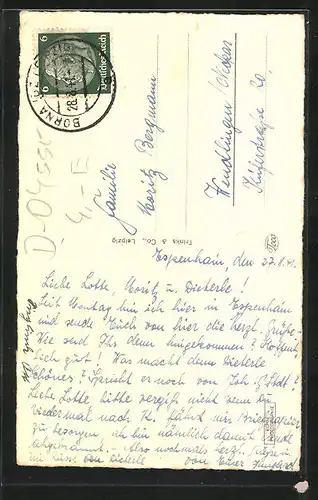 6 Deutsches Reich 6
BORNA
28.8.41
D-04550
4,- E
Familie
Moritz Bergmann
Wendlingen/Neckar
Trinks & Co., Leipzig
Espenhain, den 27.8.41.
Liebe Lotte, Moritz u. Dieterle!
Seit Montag bin ich hier in Espenhain
und sende Euch von hier die herzl. Grüße.
Wie seid Ihr denn heimgekommen? Hoffent-
lich gut! Was macht denn Dieterle
Schönes? Spricht er noch von
Liebe Lotte bitte vergiß nicht wenn Du
wiedermal nach K. fährst mir Briefpapier
zu besorgen. ich bin nämlich damit
abgebrannt. Also nochmals herzl. Grüße u.
von Dieterle von Eurer